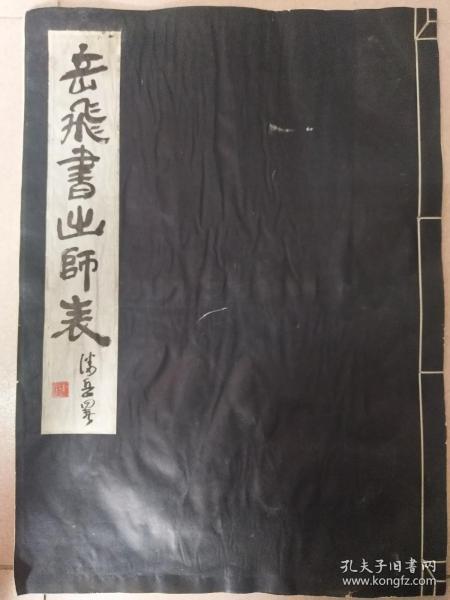 岳飛書出師表
孔夫子旧书网
www.kongfz.com